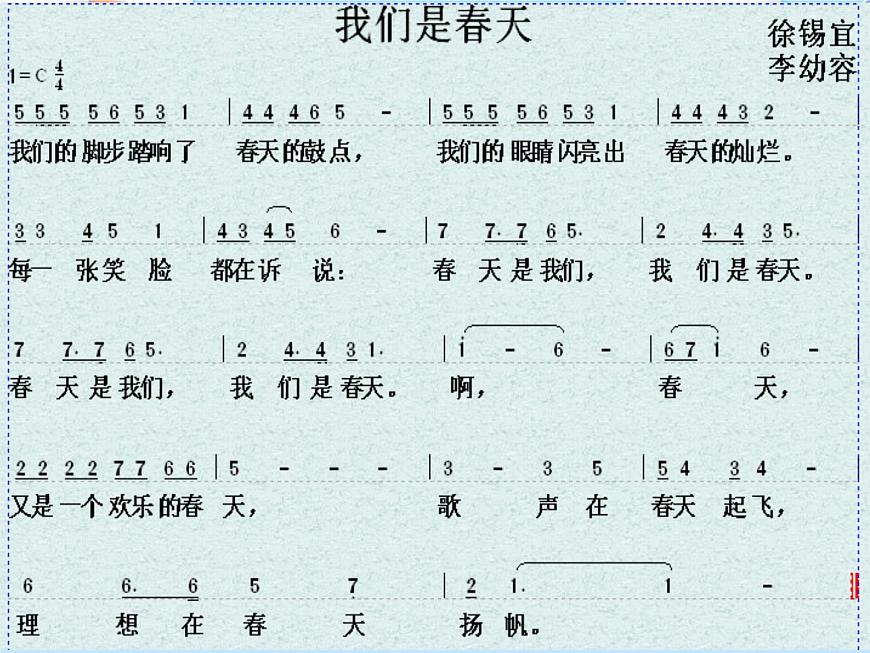 我们是春天
徐锡宜
李幼容
1=C 4/4
5 5 5 5 6 5 3 1 | 4 4 4 6 5 - | 5 5 5 5 6 5 3 1 | 4 4 4 3 2 -
我们的脚步踏响了 春天的鼓点， 我们的眼睛闪亮出 春天的灿烂。
3 3 4 5 1 | 4 3 4 5 6 - | 7 7. 7 6 5. | 2 4. 4 3 5.
每一 张笑 脸 都在诉 说： 春 天是我们， 我 们是春天。
7 7. 7 6 5. | 2 4. 4 3 1. | i - 6 - | 6 7 i 6 -
春 天是我们， 我 们是春天。 啊， 春 天，
2 2 2 2 7 7 6 6 | 5 - - - | 3 - 3 5 | 5 4 3 4 -
又是一个欢乐的春 天， 歌 声 在 春天 起飞，
6 6. 6 5 7 | 2 1. 1 -
理 想 在 春 天 扬 帆。